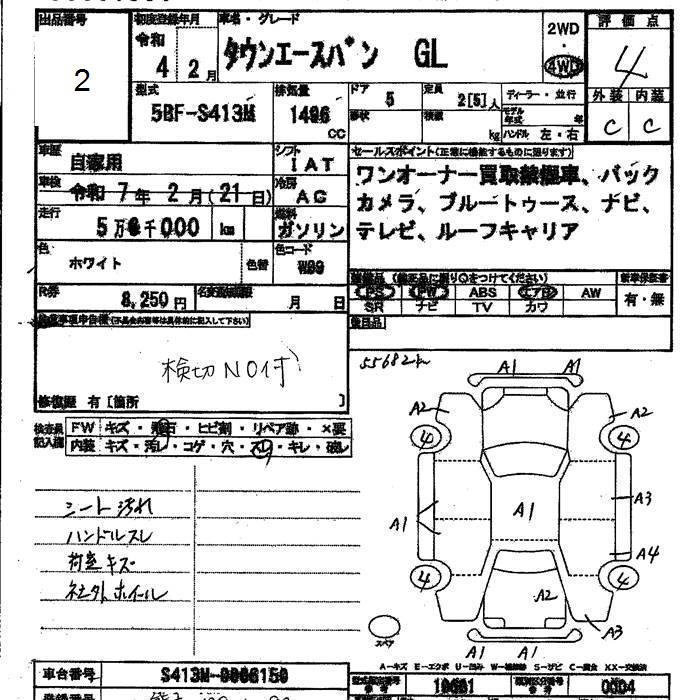 出品番号
2
初度登録年月
令和
4 2月
車名・グレード
タウンエースバン GL
2WD
・
4WD
評価点
4
外装 内装
C C
型式
5BF-S413M
排気量
1496
CC
ドア
5
形状
定員
2[5]人
積載
kg
ディーラー・並行
モデル
年式 年
ハンドル 左・右
車歴
自家用
シフト
IAT
車検
令和 7年 2月(21日)
冷房
AC
走行
km
燃料
ガソリン
セールスポイント(正常に機能するものに限ります)
ワンオーナー買取
、バック
カメラ、ブルートゥース、ナビ、
テレビ、ルーフキャリア
色
ホワイト
色替
色コード
W09
R券
8,250円
月 日
PS PW ABS エアB AW
SR ナビ TV カワ
新車保証書
有・無
後日品
検切NO付
修復歴 有[箇所 ]
55682km
検査員
記入欄
FW キズ・飛石・ヒビ割・リペア跡・×要
内装 キズ・汚レ・コゲ・穴・スレ・キレ・破レ
シート汚れ
ハンドルスレ
荷室キズ
社外ホイール
A1 A1
A2 A2
4 4
A1 A1 A3
A4
4 4
A2
A3
スペア
A1 A1
A-キズ E-エクボ U-凹み W-補修跡 S-サビ C-腐食 XX-交換済
車台番号
S413M-0006150
0004